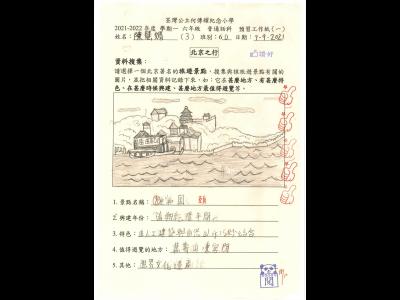 荃灣公立何傳耀紀念小學
2021-2022年度 學期一 六年級 普通話科 預習工作紙(一)
姓名： (3) 班別：6D 日期：7-9-2021
北京之行
資料搜集：
請選擇一個北京著名的旅遊景點，搜集與該旅遊景點有關的
圖片，並把相關資料記錄下來，如：它在甚麼地方、有甚麼特
色、在甚麼時候興建、甚麼地方最值得遊覽等。
1. 景點名稱： 頤和園 頤
2. 興建年份： 清朝乾隆年間
3. 特色：
4. 值得遊覽的地方： 萬壽山
5. 其他： 世界文化遺產
閱